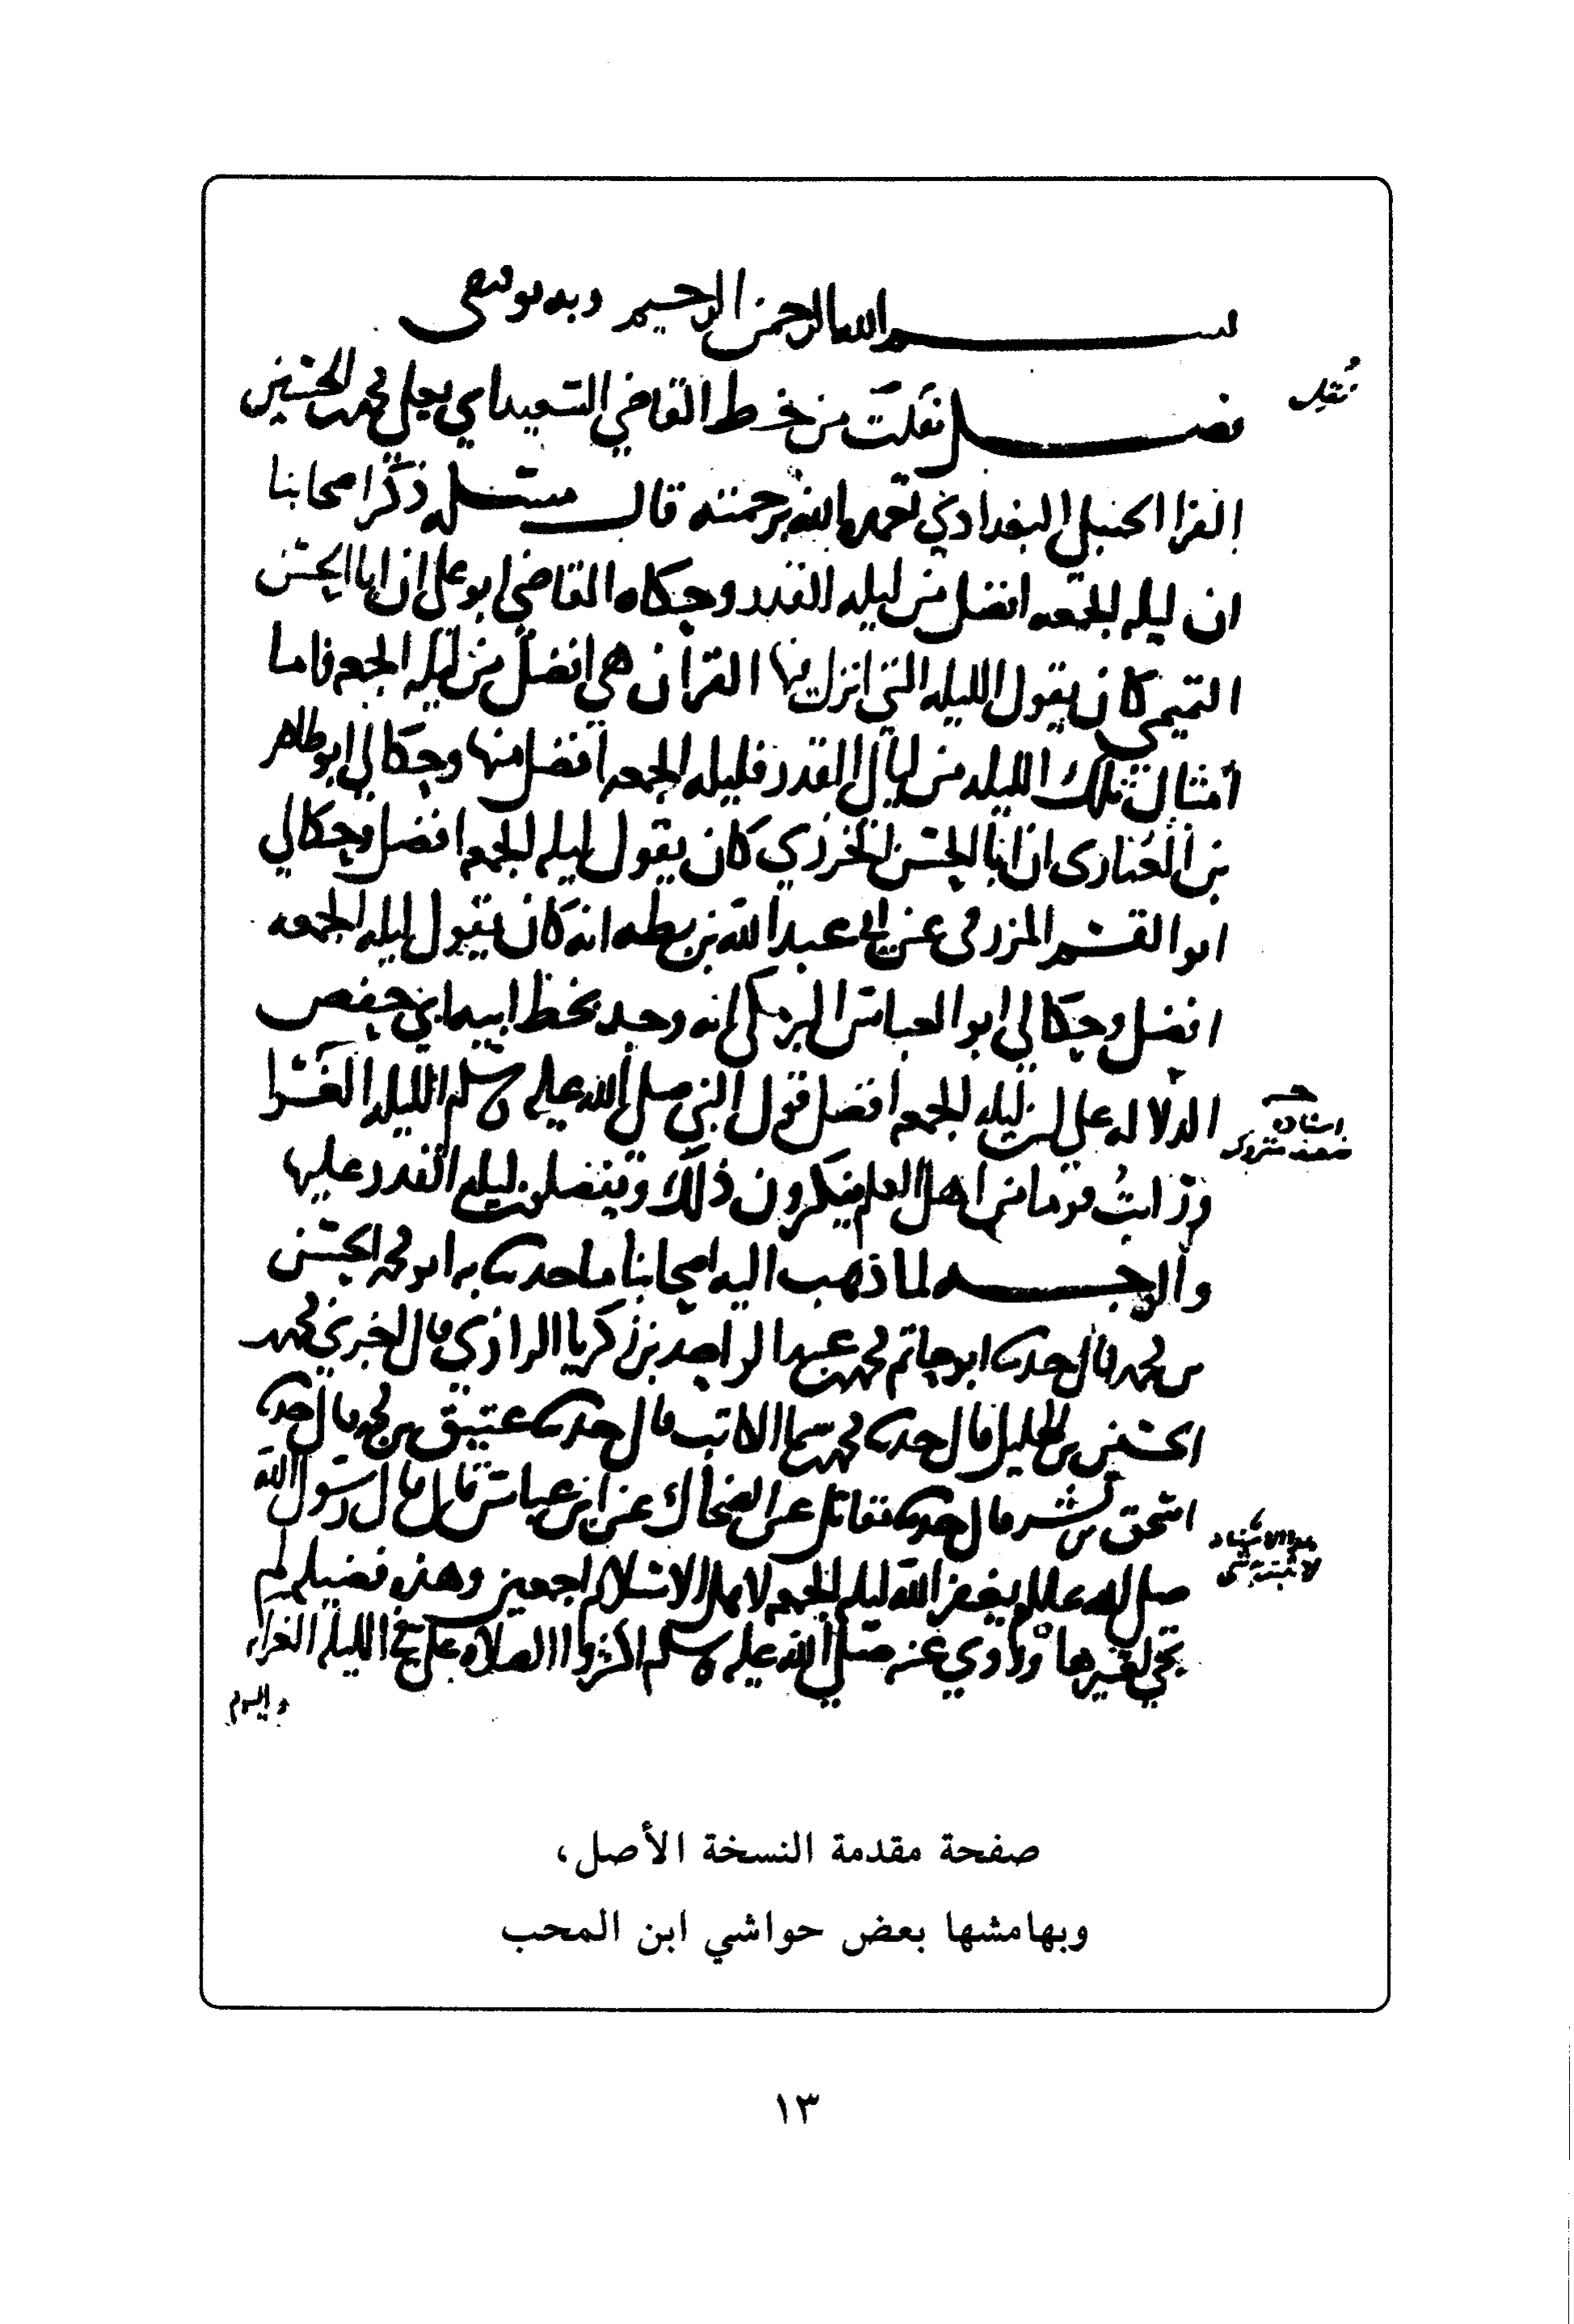 بسم الله الرحمن الرحيم وبه توفيقي
نقل
فصل نقلت من خط القاضي السعيد ابي يعلى محمد بن الحسين
الفرا الحنبلي البغدادي تغمده الله برحمته قال مسئله ذكر اصحابنا
ان ليله الجمعه افضل من ليله القدر وحكاه القاضي ابو علي ان ابا الحسن
التميمي كان يقول الليله التي انزل فيها القران هي افضل من ليله الجمعه فاما
امثال تلك الليله من ليال القدر فليله الجمعه افضل منها وحكا لي ابو طاهر
بن ان ابا الحسن الخرزي كان يقول ليله الجمعه افضل وحكا لي
ابو القسم المزرفى عن ابي عبد الله بن بطه انه كان يقول ليله الجمعه
افضل وحكا لي ابو العباس البرمكي انه وجد بخط ابيه ابي حفص
الدلاله على ان ليله الجمعه افضل قول النبي صلى الله عليه وسلم الليله الغرا
اسناده
ضعيف متروك
ورايت قوما من اهل العلم ينكرون ذلك وتفضل ليله القدر عليها
والوجه لما ذهب اليه اصحابنا ما حدثنا به ابو محمد الحسن
بن محمد قال حدثنا ابو حاتم محمد بن عبد الواحد بن زكريا الرازي قال اخبرني محمد بن
الحسين بن الخليل قال حدثنا محمد بن الكاتب قال حدثنا عتيق بن محمد قال حدثنا
اسحق بن بشر قال حدثنا مقاتل عن الضحاك عن ابن عباس قال قال رسول الله
هذا الاسناد
لا يثبت به شي
صلى الله عليه وسلم يغفر الله ليله الجمعه لاهل الاسلام اجمعين وهذه فضيله لم
تجي لغيرها وروي عنه صلى الله عليه وسلم اكثروا الصلاه علي في الليله الغراء
واليوم
صفحة مقدمة النسخة الأصل،
وبهامشها بعض حواشي ابن المحب
١٣